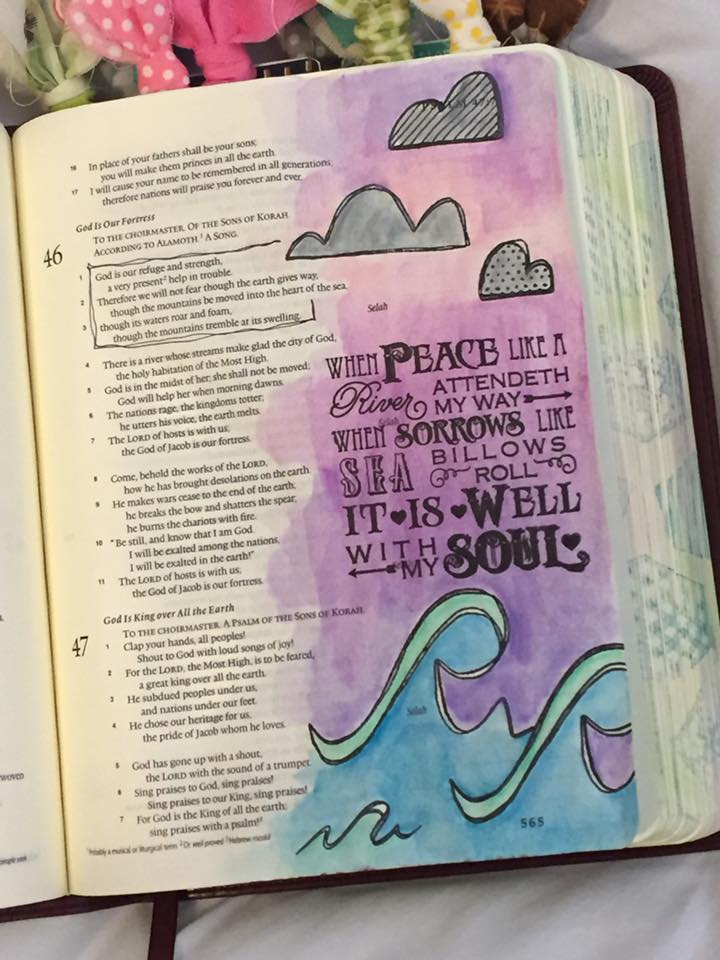 PSALM 47:7
16 In place of your fathers shall be your sons;
you will make them princes in all the earth.
17 I will cause your name to be remembered in all generations;
therefore nations will praise you forever and ever.
God Is Our Fortress
46 TO THE CHOIRMASTER. OF THE SONS OF KORAH.
ACCORDING TO ALAMOTH.1 A SONG.
1 God is our refuge and strength,
a very present2 help in trouble.
2 Therefore we will not fear though the earth gives way,
though the mountains be moved into the heart of the sea,
3 though its waters roar and foam,
though the mountains tremble at its swelling. Selah
4 There is a river whose streams make glad the city of God,
the holy habitation of the Most High.
5 God is in the midst of her; she shall not be moved;
God will help her when morning dawns.
6 The nations rage, the kingdoms totter;
he utters his voice, the earth melts.
7 The LORD of hosts is with us;
the God of Jacob is our fortress. Selah
8 Come, behold the works of the LORD,
how he has brought desolations on the earth.
9 He makes wars cease to the end of the earth;
he breaks the bow and shatters the spear;
he burns the chariots with fire.
10 "Be still, and know that I am God.
I will be exalted among the nations,
I will be exalted in the earth!"
11 The LORD of hosts is with us;
the God of Jacob is our fortress.
God Is King over All the Earth
47 TO THE CHOIRMASTER. A PSALM OF THE SONS OF KORAH.
1 Clap your hands, all peoples!
Shout to God with loud songs of joy!
2 For the LORD, the Most High, is to be feared,
a great king over all the earth.
3 He subdued peoples under us,
and nations under our feet.
4 He chose our heritage for us,
the pride of Jacob whom he loves. Selah
5 God has gone up with a shout,
the LORD with the sound of a trumpet.
6 Sing praises to God, sing praises!
Sing praises to our King, sing praises!
7 For God is the King of all the earth;
sing praises with a psalm!3
1Probably a musical or liturgical term 2Or well proved 3Hebrew maskil
WHEN PEACE LIKE A
River ATTENDETH
MY WAY
WHEN SORROWS LIKE
SEA BILLOWS
ROLL
IT IS WELL
WITH
MY SOUL
565